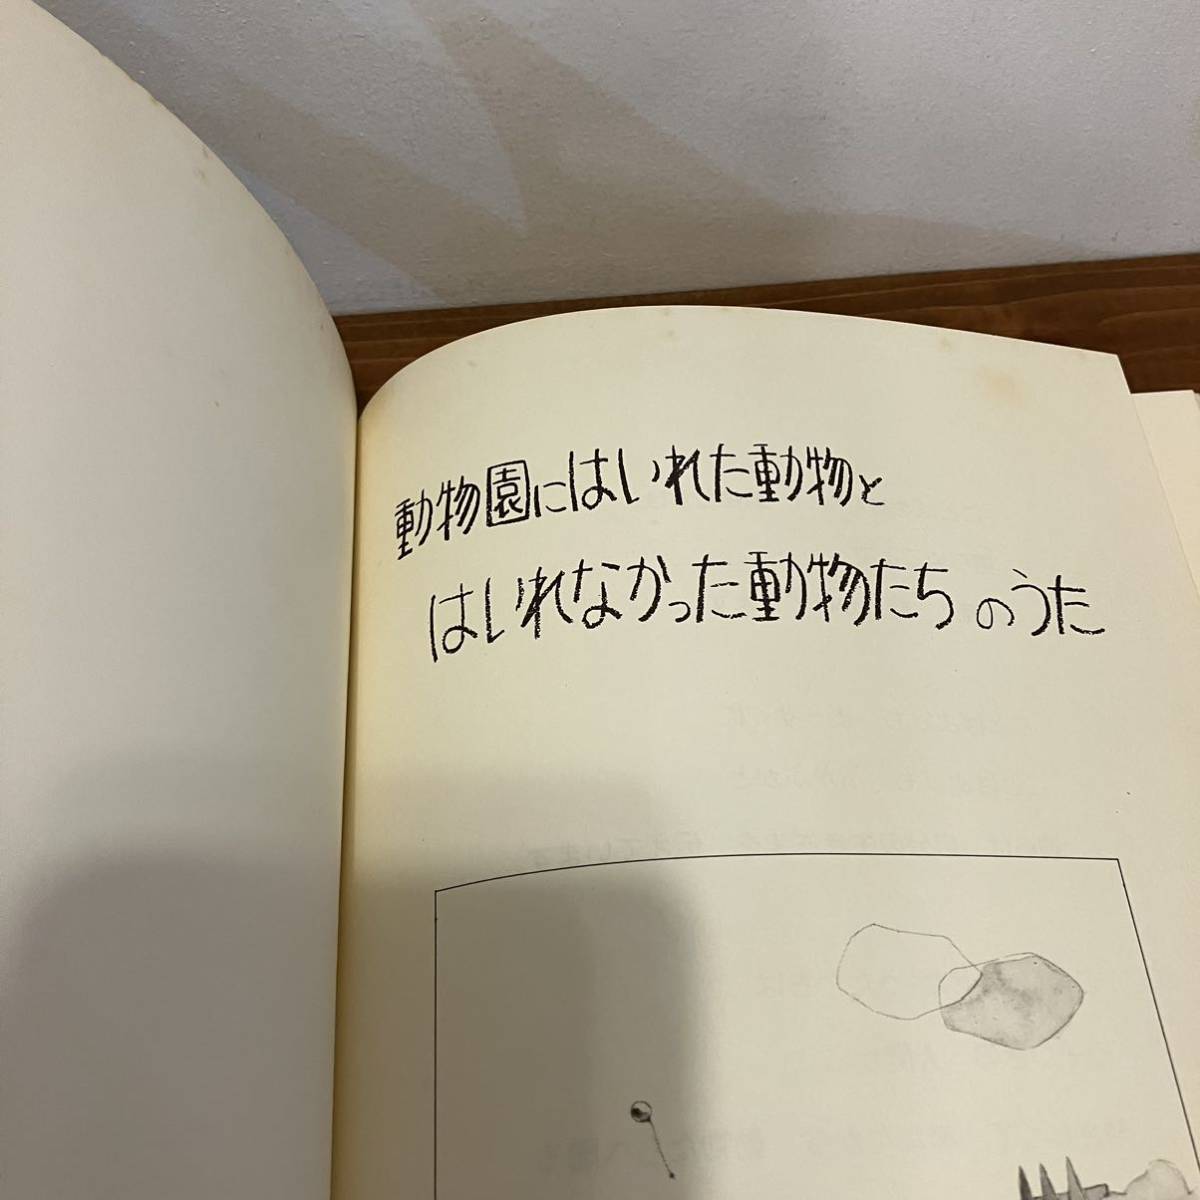 動物園にはいれた動物と
はいれなかった動物たちのうた